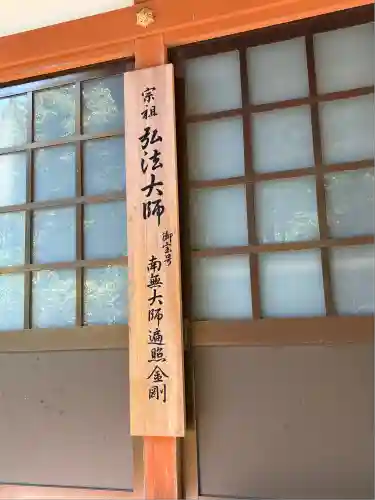 宗祖 弘法大師
御宝号 南無大師遍照金剛